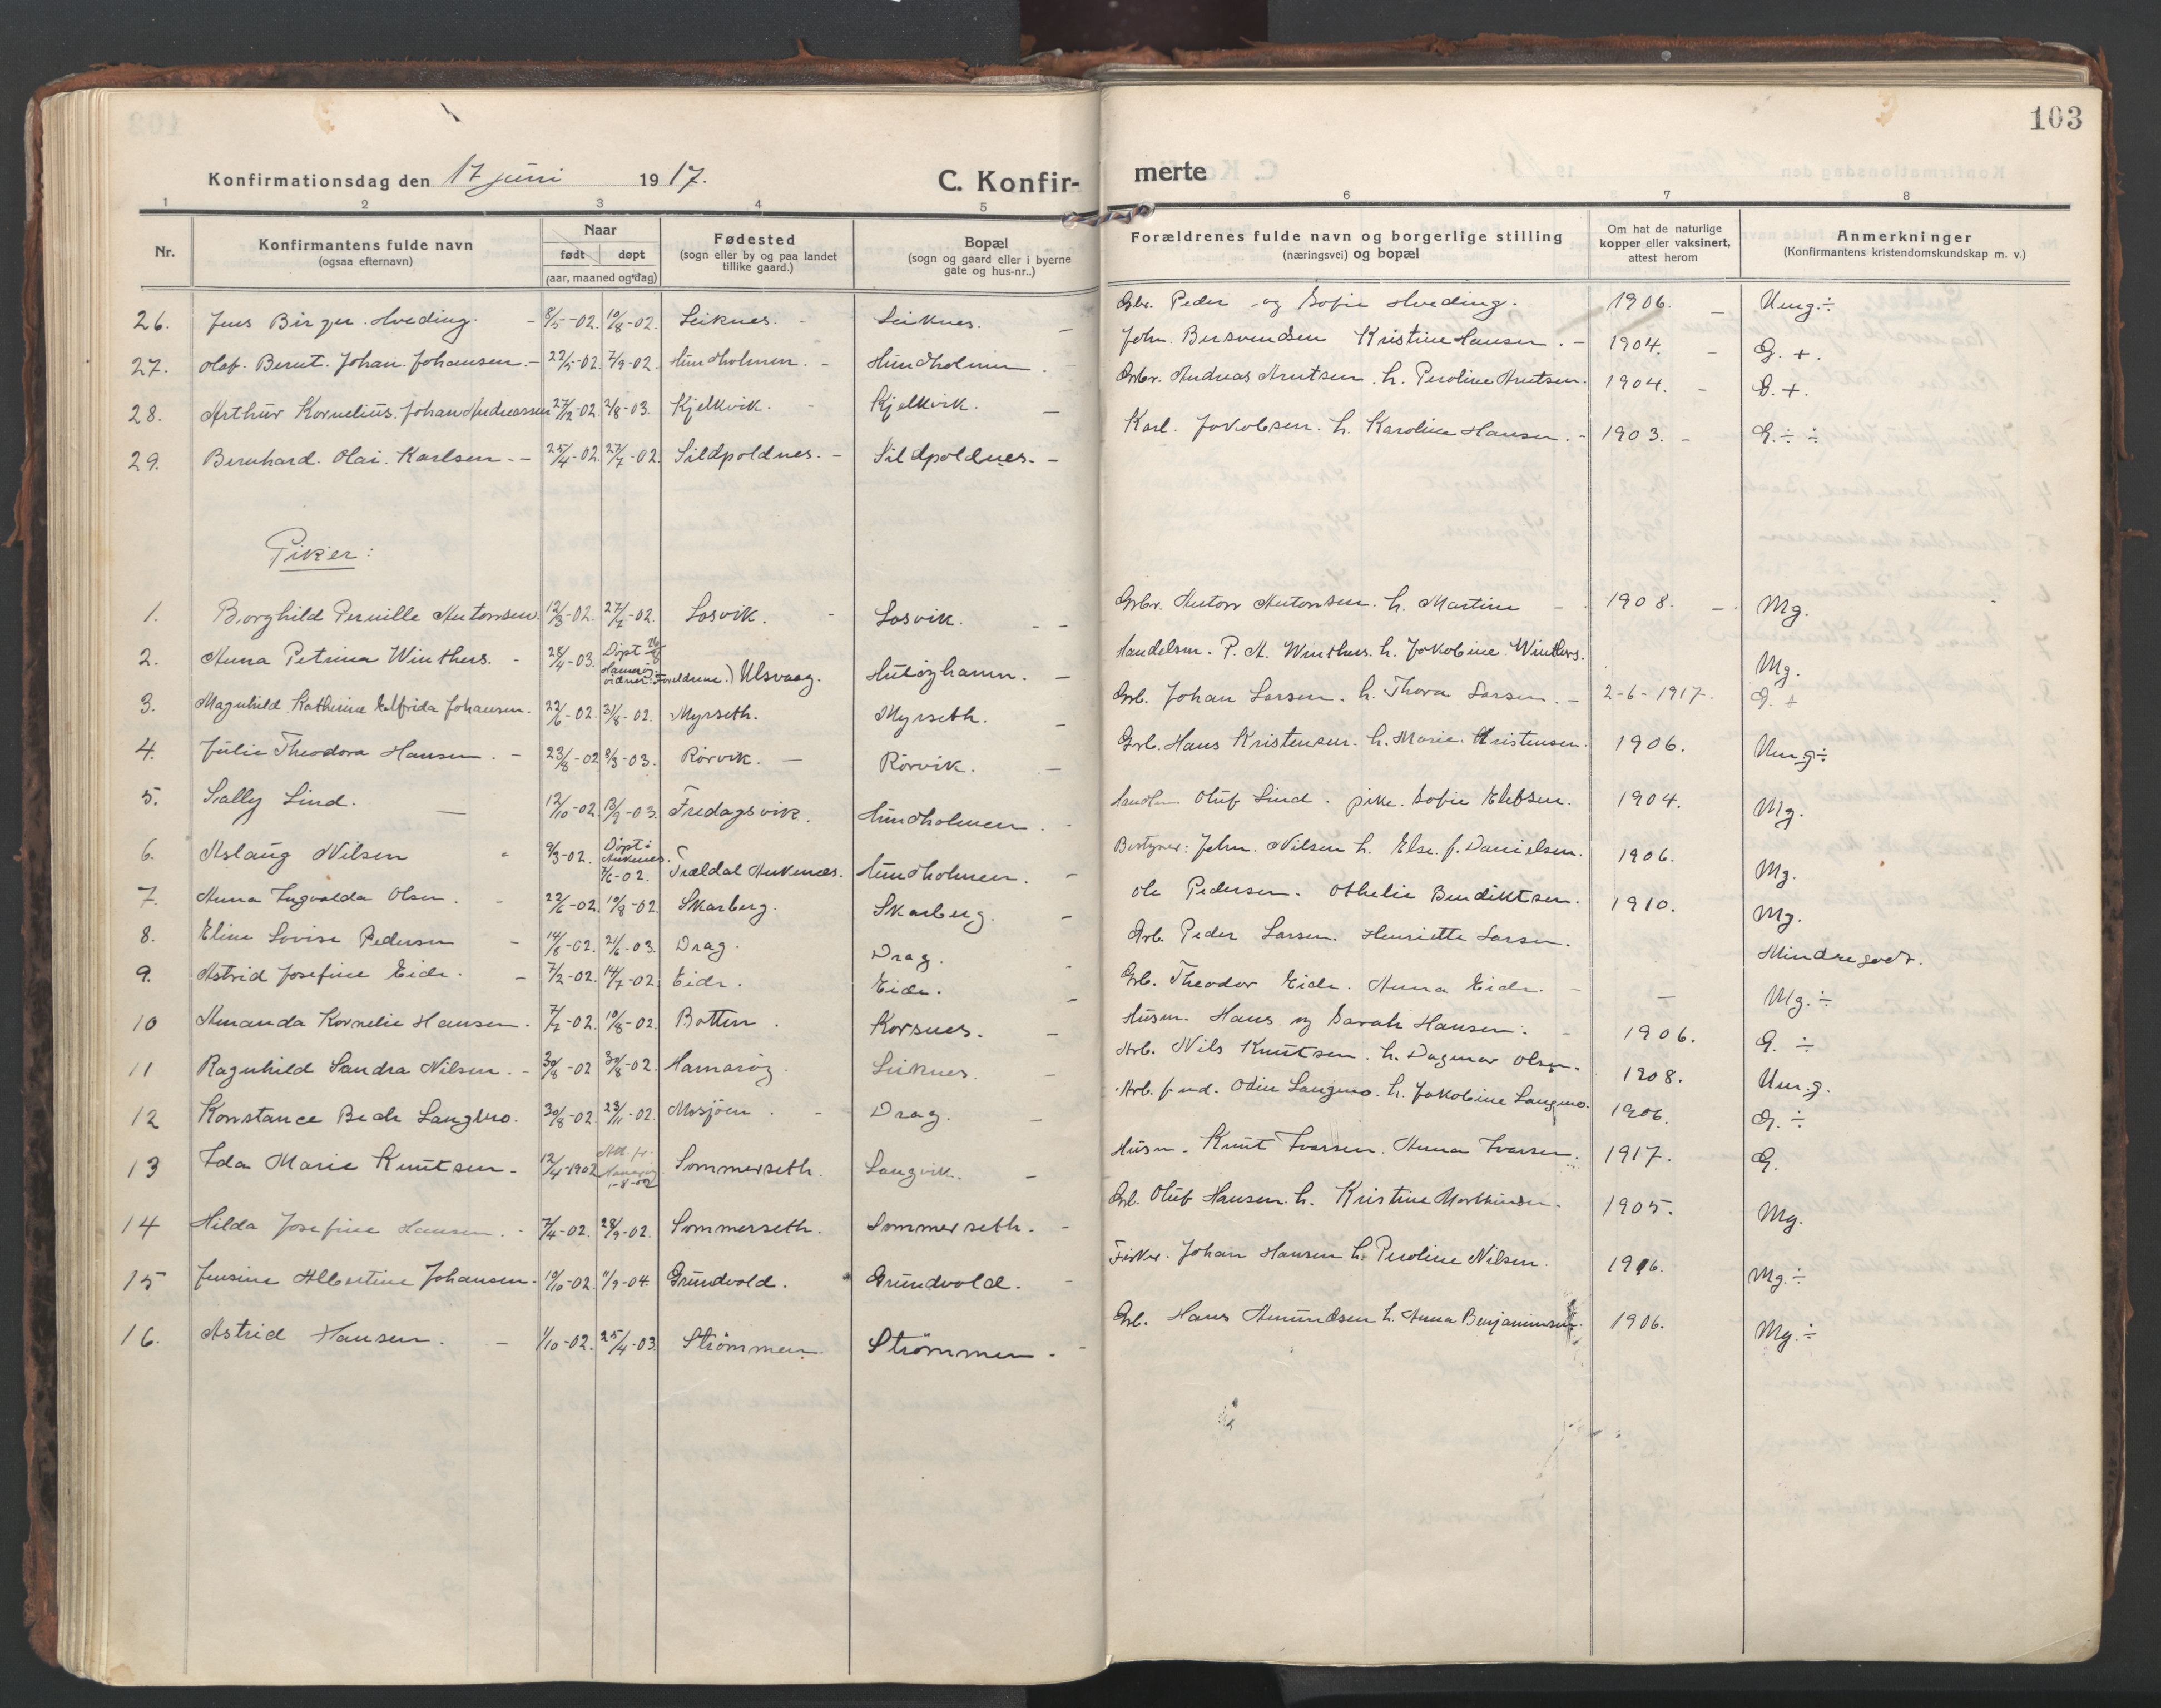 103
Konfirmationsdag den 17 juni 1917. C. Konfirmerte
1 2 3 4 5 6 7 8
Nr. Konfirmantens fulde navn (ogsaa efternavn) Naar født døpt (aar, maaned og dag) Fødested (sogn eller by og paa landet tillike gaard.) Bopæl (sogn og gaard eller i byerne gate og hus-nr..) Forældrenes fulde navn og borgerlige stilling (næringsvei) og bopæl Om hat de naturlige kopper eller vaksinert, attest herom Anmerkninger (Konfirmantens kristendomskundskap m. v.)
26. Jens Birger Hveding. 8/5-02. 10/8-02. Leiknes. Leiknes. Gbr. Peder og Sofie Hveding. 1906. Umg.÷
27. Olaf Bernt Johan Johansen. 22/5-02. 7/9-02. Hundholmen. Hundholmen. John Kristine Hansen. 1904. G. +.
28. Arthur Kornelius Johan Andreassen 27/12-02. 2/8-03. Kjelkvik. Kjelkvik. Andreas Knutsen. h. Peroline Knutsen. 1904. G. +.
29. Bernhard Olai Karlsen. 25/4-02. 27/7-02. Sildpoldnes. Sildpoldnes. Karl Jakobsen. h. Karoline Hansen. 1903. G. ÷ ÷
Piker:
1. Borghild Pernille Antonsen. 12/3-02. 27/7-02. Losvik. Losvik. Anton Antonsen. h. Martine 1908. Mg.
2. Anna Petrina Winthers. 28/4-03. Døpt Hamarøy Foreldrene.) Ulsvaag. Handelsm. P. A. Winthers. h. Jakobine Winthers. Mg.
3. Magnhild Kathrine Elfrida Johansen. 22/6-02. 31/8-02. Myrseth. Myrseth. Grb. Johan Larsen. h. Thora Larsen. 2-6-1917. G. +
4. Julie Theodora Hansen. 23/8-02 8/3-03. Rørvik. Rørvik. Grb. Hans Kristensen. h. Marie Kristensen. 1906. Um.g÷
5. Sally Lind. 12/10-02. -03. Fredagsvik. Hundholmen. Oluf Lind. pike. Sofie 1904. Mg.
6. Aslaug Nilsen 9/3-02. Døpt i Ankenes. 7/6-02. Trældal Ankenæs. Hundholmen. Bestyrer: John Nilsen h. Else f. Danielsen. 1906. Mg.
7. Anna Ingvalda Olsen. 22/6-02. 10/8-02. Skarberg. Skarberg. Ole Pedersen. Othelie Bendiktsen. 1910. Mg.
8. Eline Lovise Pedersen 14/8-02. 21/6-03. Drag. Drag. Peder Larsen. Henriette Larsen. Mindre godt.
9. Astrid Josefine Eide. 7/2-02. 14/7-02. Eide. Eide. Grb. Theodor Eide. Anna Eide. — Mg.÷
10 Amanda Kornelie Hansen. 7/7-02. 10/8-02. Botten. Korsnes. Husm. Hans og Sarah Hansen. 1906. G. ÷
11 Ragnhild Sandra Nilsen. 30/8-02 30/8-02. Hamarøy. Leiknes. Arb. Nils Knutsen. h. Dagmar Olsen. 1908. Um.g.
12 Konstance Langmo. 30/8-02. 23/11-02. Mosjøen. Drag. Arb. Odin Langmo. h. Jakobine Langmo. 1906. G. ÷
13 Ida Marie Knutsen. 12/4-1902 Att. fr. Hamarøy 1-8-02 Sommerseth. Langvik. Husm. Knut Ivarsen. Anna Ivarsen. 1917. G.
14 Hilda Josefine Hansen. 7/4-02. 28/9-02. Sommerseth. Sommerseth. Grb. Oluf Hansen. h. Kristine 1905. Mg.
15 Jensine Albertine Johansen. 10/10-02. 11/9-04. Grundvold. Grundvold. Fisker. Johan Hansen h. Peroline Nilsen. 1916. Mg.÷
16. Astrid Hansen. 1/10-02. 25/4-03. Strømmen. Strømmen. Hans Amundsen h. Anna Benjaminsen. 1906. Mg.÷